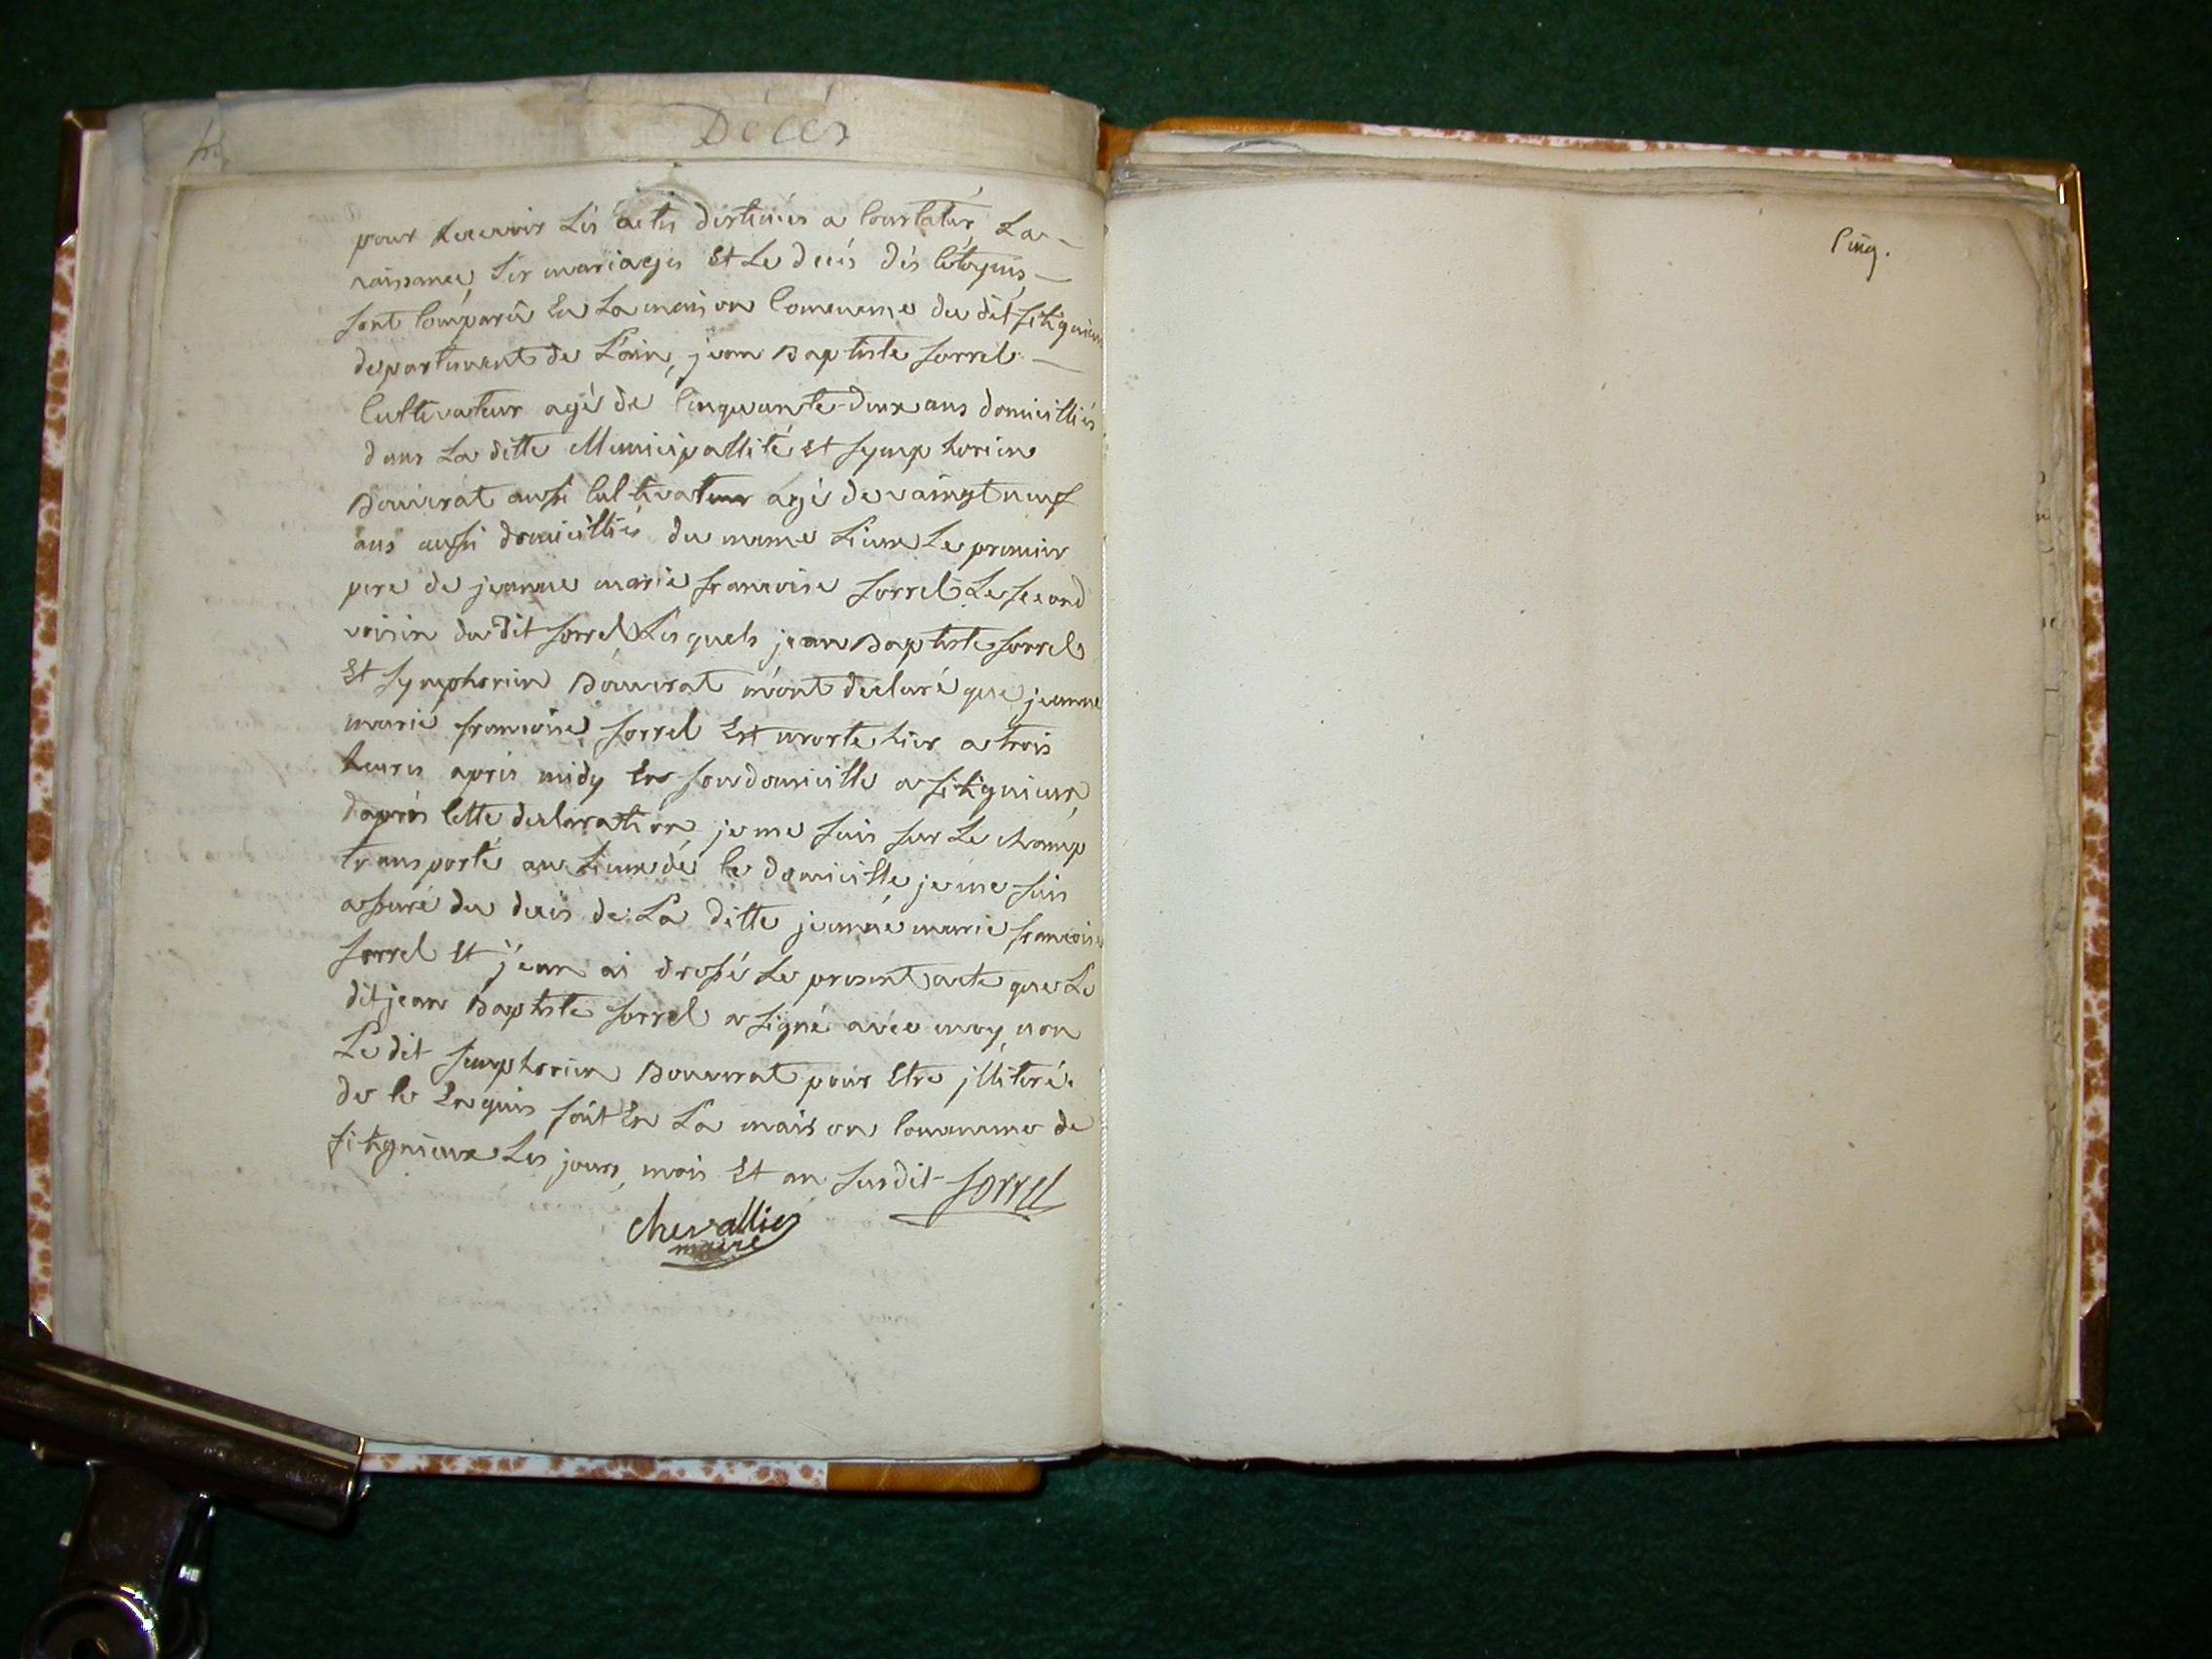 Décés
pour recevoir Les actes destinés a Constater La
naissance, Les mariages Et Le decés dés Citoyens,
sont Comparu En La maison Commune du dit fitignieux
departement de L'ain, jean Baptiste sorrel
Cultivateur agé de Cinquante-deux ans domicilliés
dans La ditte Municipallité Et symphorien
Bouverat aussi Cultivateur agé de vaingt neuf
ans aussi domicilliés du meme Lieux Le premier
pere de jeanne marie francoise sorrel Le second
voisin du dit sorrel, Lesquels jean Baptiste sorrel
Et symphorien Bouverat m'ont declaré que jeanne
marie francoise sorrel Est morte hier a trois
heures apris midy En son domicille a fitignieux,
daprés Cette declaration, je me suis sur Le champ
transporté au Lieux de Ce domicille, je me suis
assuré du decis de La ditte jeanne marie francoise
sorrel Et j'en ai dressé Le present acte que Le
dit jean Baptiste sorrel a signé avec moy, non
Le dit simphorien Bouverat pour Etre jlliteré.
de Ce Enquis fait En La maison Commune de
fitignieux Les jours, mois Et an susdit sorrel
chevallier
maire
Cinq.